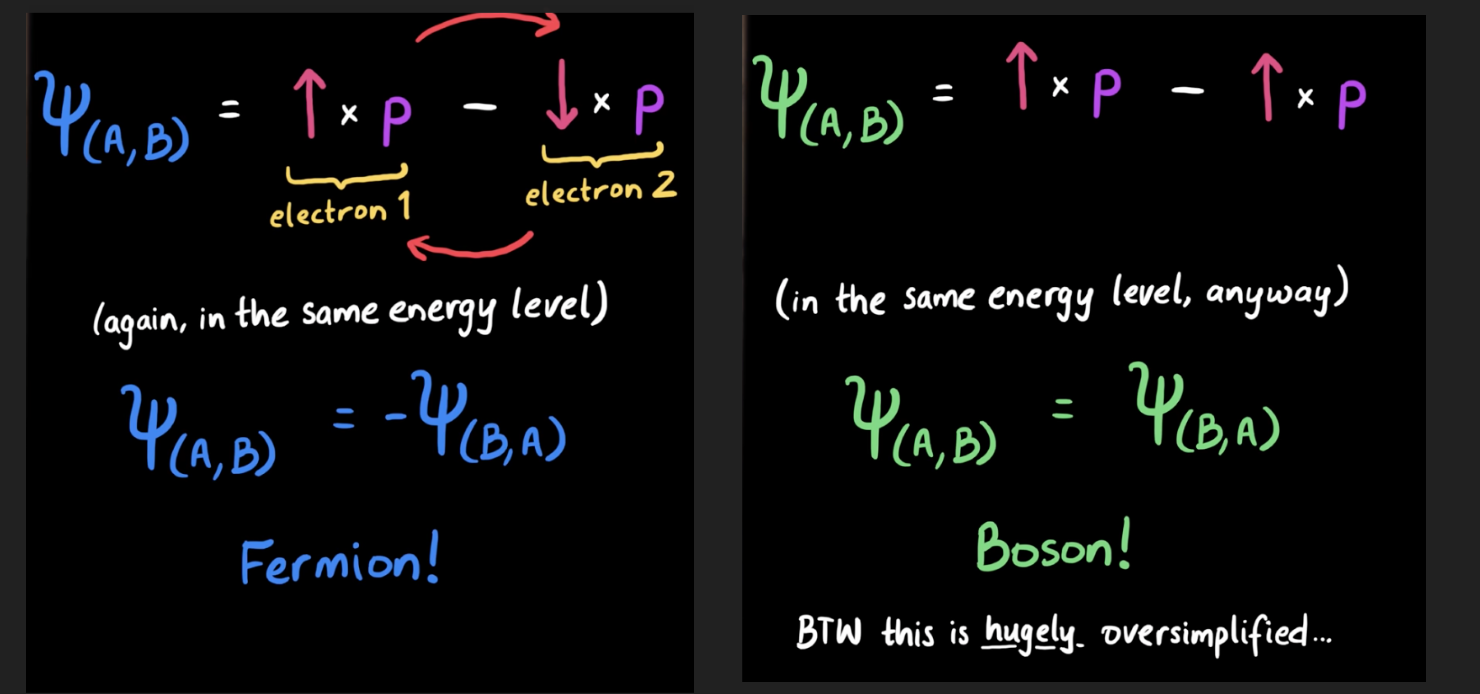 Ψ(A,B) = ↑ × p − ↓ × p
electron 1
electron 2
(again, in the same energy level)
Ψ(A,B) = -Ψ(B,A)
Fermion!
Ψ(A,B) = ↑ × p − ↑ × p
(in the same energy level, anyway)
Ψ(A,B) = Ψ(B,A)
Boson!
BTW this is hugely oversimplified...